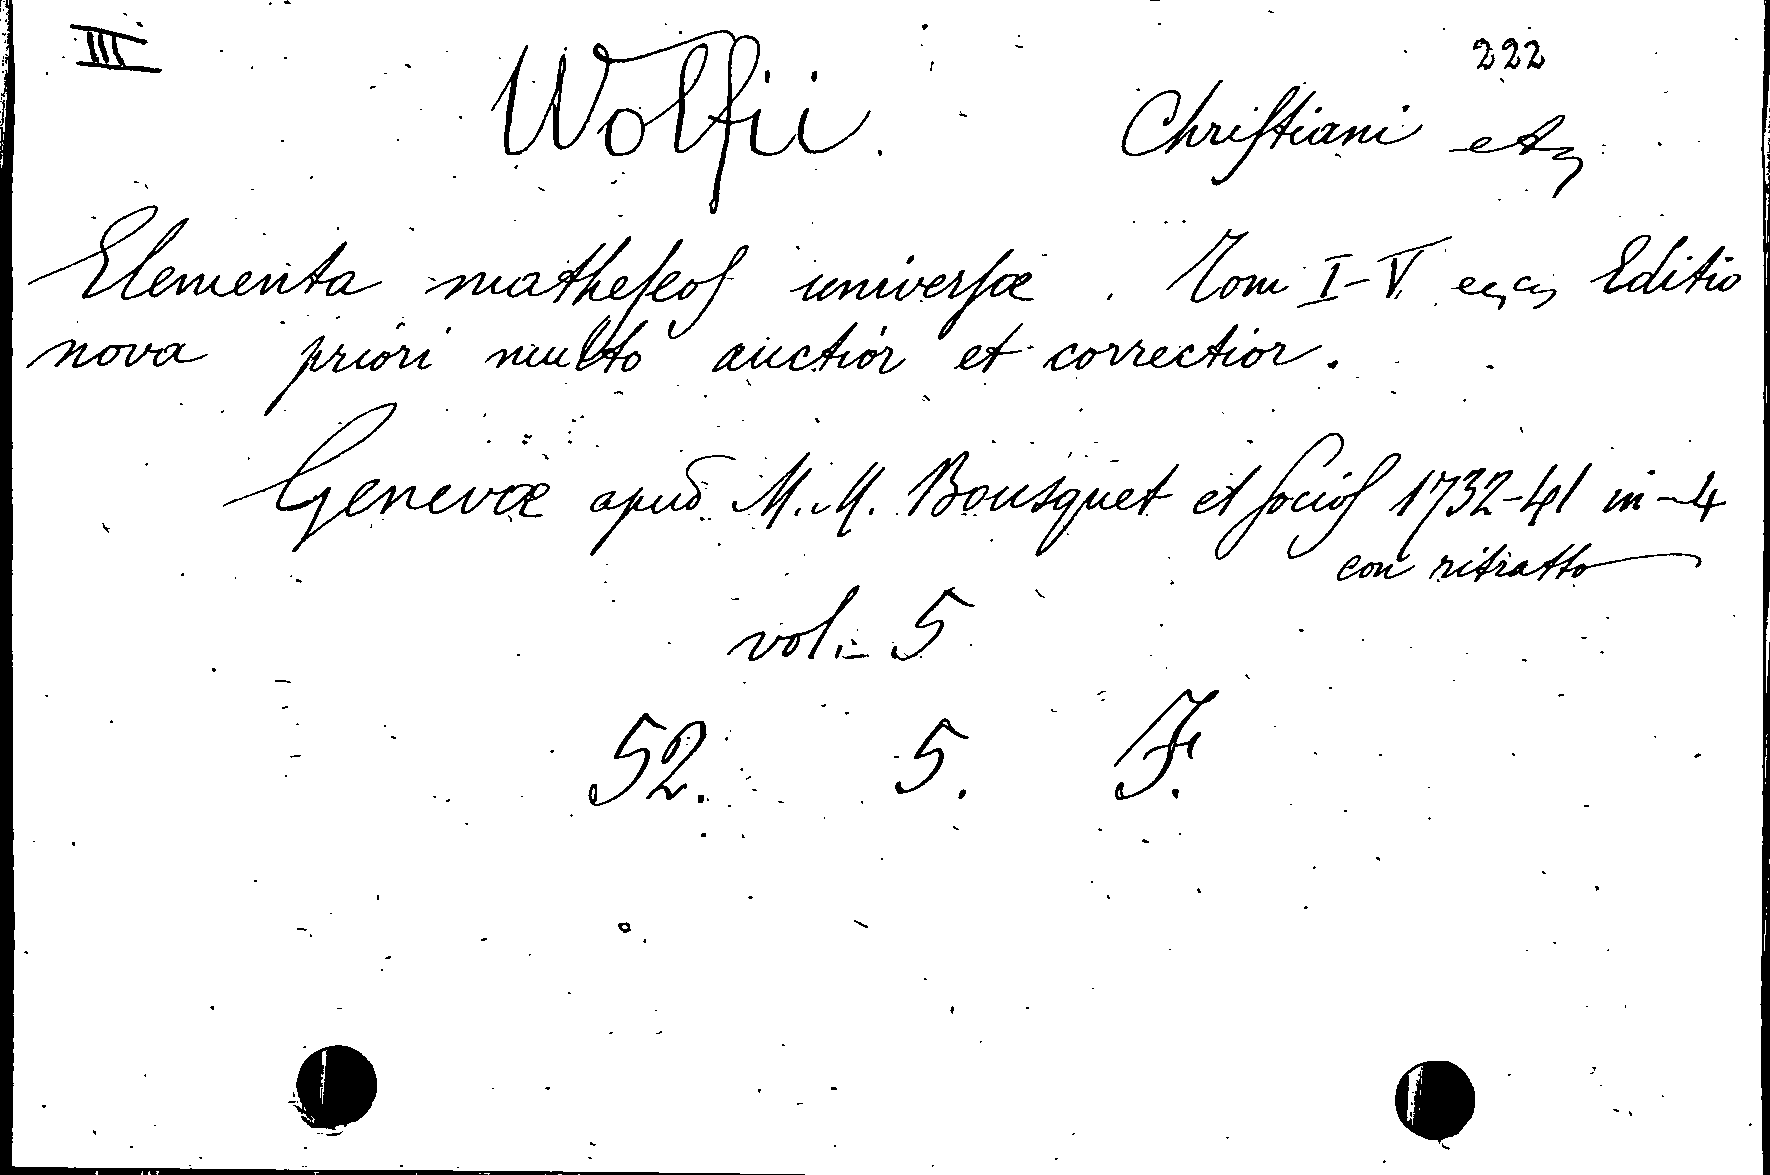 III 222
Wolfii. Chriſtiani etc
Elementa matheſeoſ univerſæ. Tom I-V. ecc Editio
nova priori multo auctior et correctior.
Genevæ apud M. M. Bousquet et ſocioſ 1732-41 in-4
con ritratto
vol:- 5
52. 5. F.